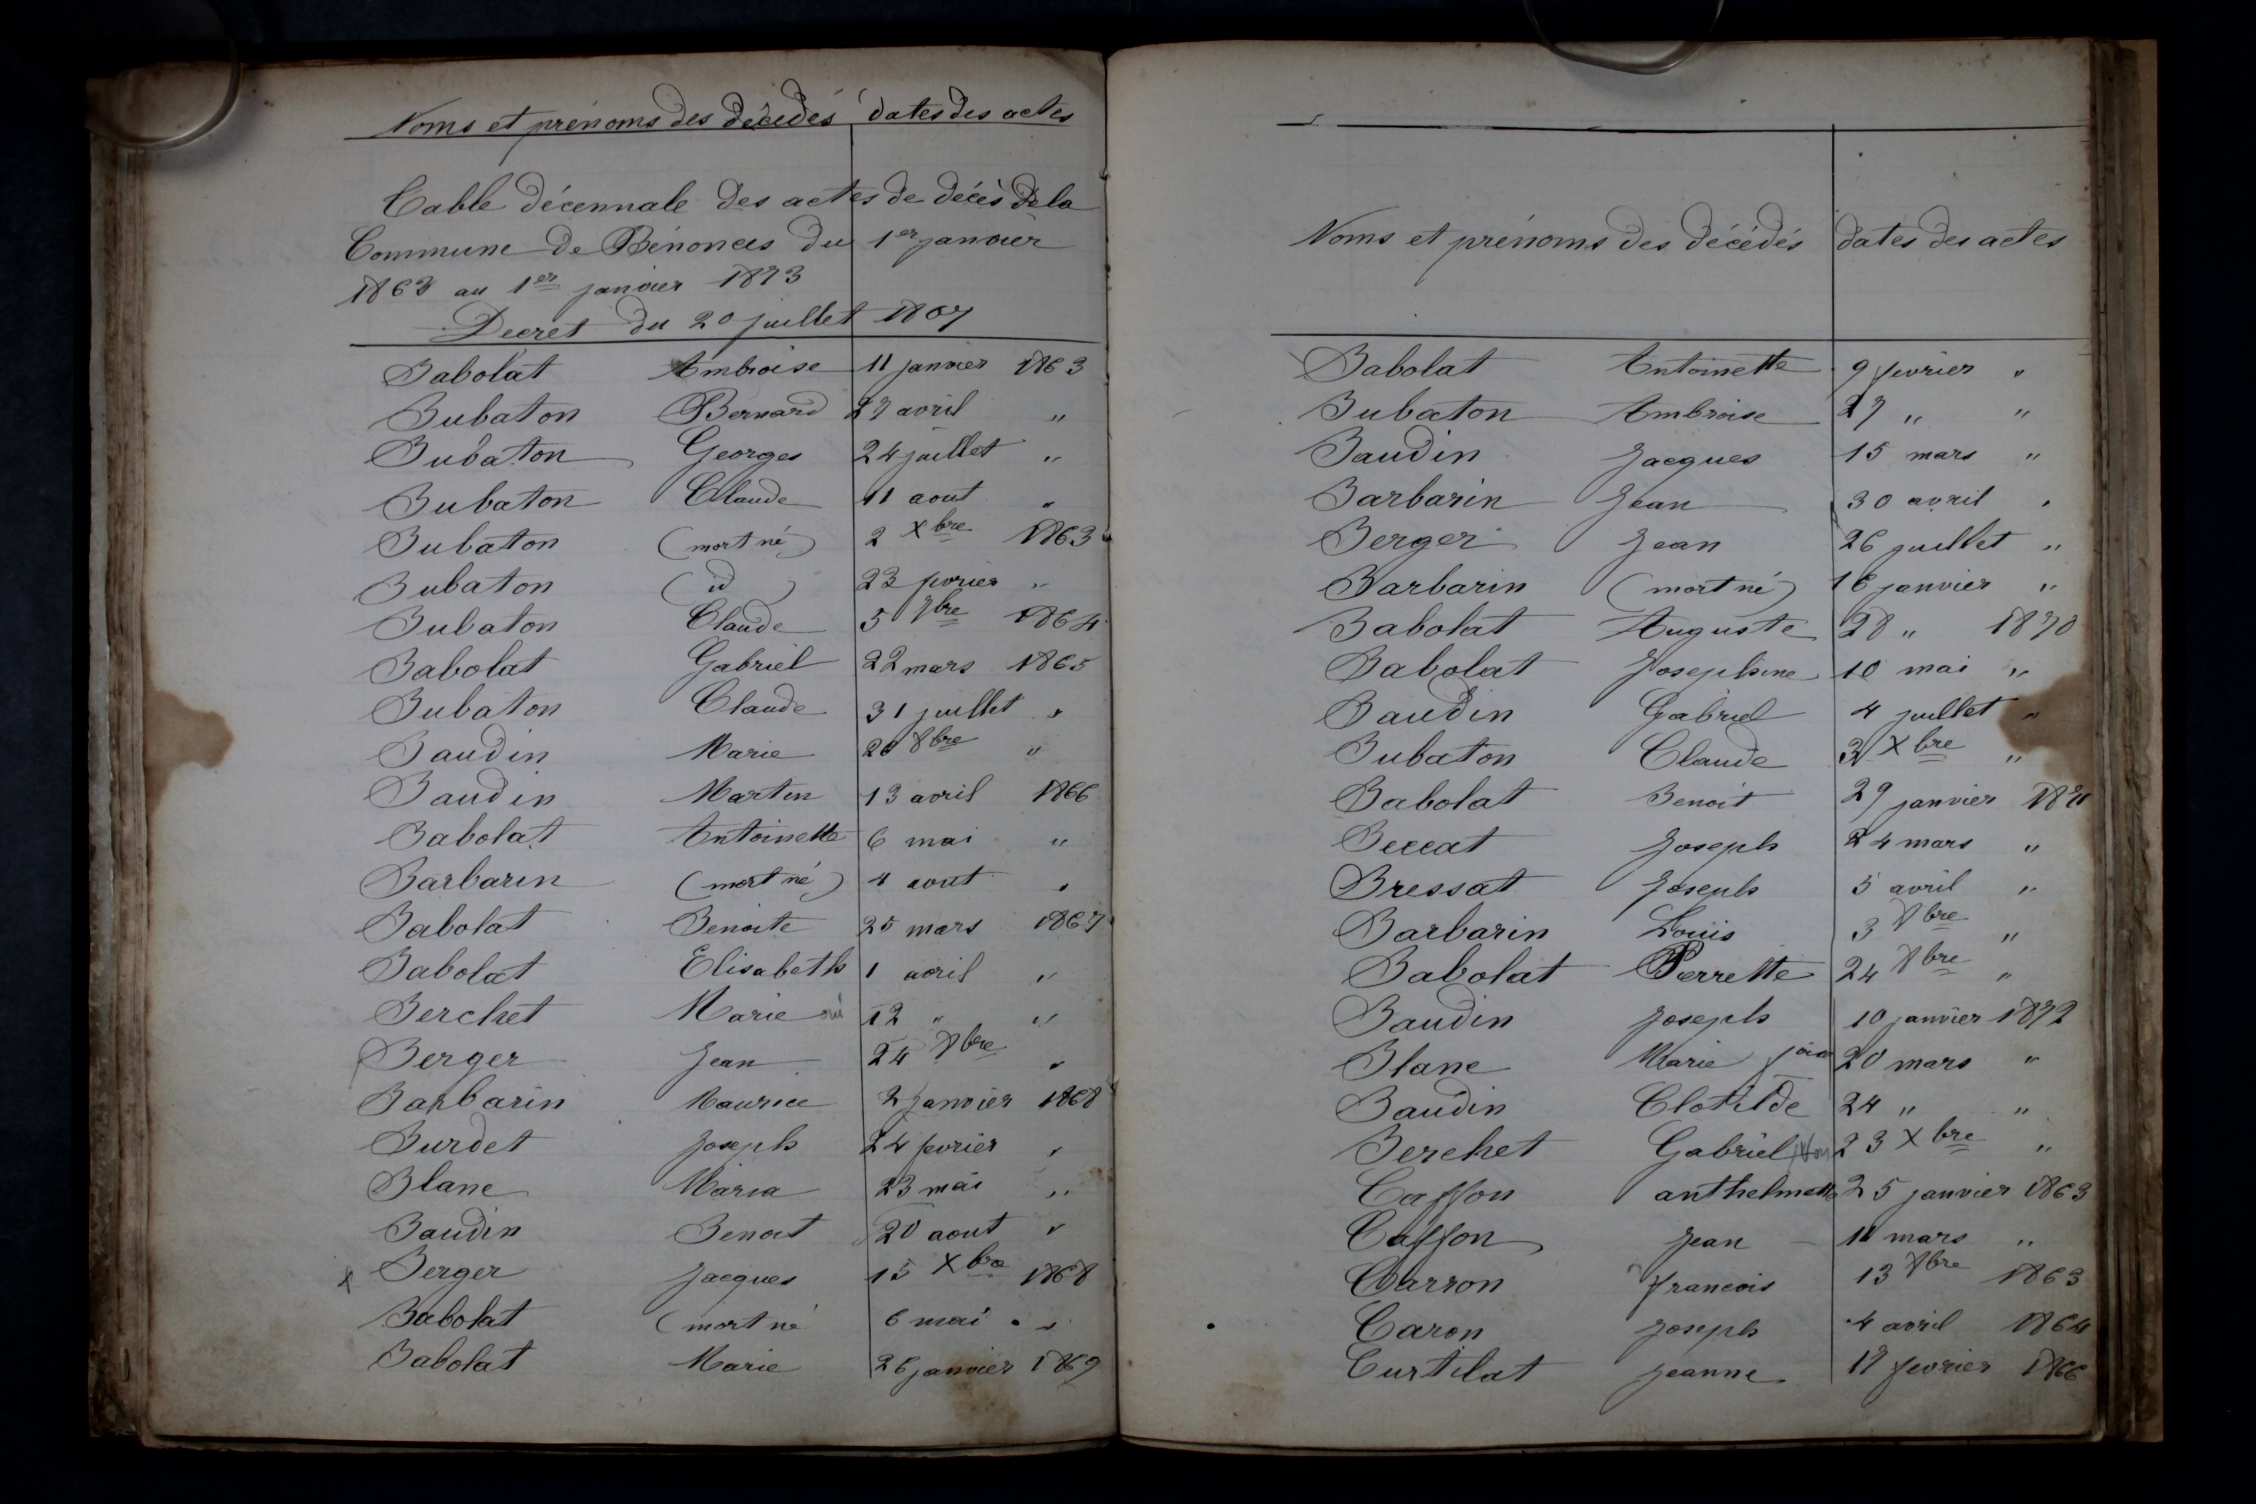 Noms et prénoms des décédés dates des actes
Table décennale des actes de décès de la
Commune de Bénonces du 1er janvier
1863 au 1er janvier 1873
Decret du 20 juillet 1807
Babolat Ambroise 11 janvier 1863
Bubaton Bernard 27 avril "
Bubaton Georges 24 juillet "
Bubaton Claude 11 aout "
Bubaton (mort né) 2 Xbre 1863
Bubaton (id) 23 fevrier "
Bubaton Claude 5 7bre 1864
Babolat Gabriel 22 mars 1865
Bubaton Claude 31 juillet "
Baudin Marie 26 8bre "
Baudin Martin 13 avril 1866
Babolat Antoinette 6 mai "
Barbarin (mort né) 4 aout "
Babolat Benoite 25 mars 1867
Babolat Elisabeth 1 avril "
Berchet Marie 12 " "
Berger Jean 24 8bre "
Barbarin Maurice 2 janvier 1868
Burdet Joseph 24 fevrier "
Blanc Maria 23 mai "
Baudin Benoit 20 aout "
x Berger Jacques 15 Xbre 1868
Babolat (mort né 6 mai "
Babolat Marie 26 janvier 1869
Noms et prénoms des décédés dates des actes
Babolat Antoinette 9 fevrier "
Bubaton Ambroise 27 " "
Baudin Jacques 15 mars "
Barbarin Jean 30 avril "
Berger Jean 26 juillet "
Barbarin (mort né) 16 janvier "
Babolat Auguste 28 " 1870
Babolat Josephine 10 mai "
Baudin Gabriel 4 juillet "
Bubaton Claude 3 Xbre "
Babolat Benoit 29 janvier 1871
Beccat Joseph 24 mars "
Bressat Joseph 5 avril "
Barbarin Louis 3 8bre "
Babolat Pierrette 24 8bre "
Baudin Joseph 10 janvier 1872
Blanc Marie 20 mars "
Baudin Clotilde 24 " "
Berchet Gabriel 23 Xbre "
Caffon anthelmette 25 janvier 1863
Caffon Jean 11 mars "
Charron francois 13 8bre 1863
Caron Joseph 4 avril 1864
Curtilat Jeanne 17 fevrier 1866